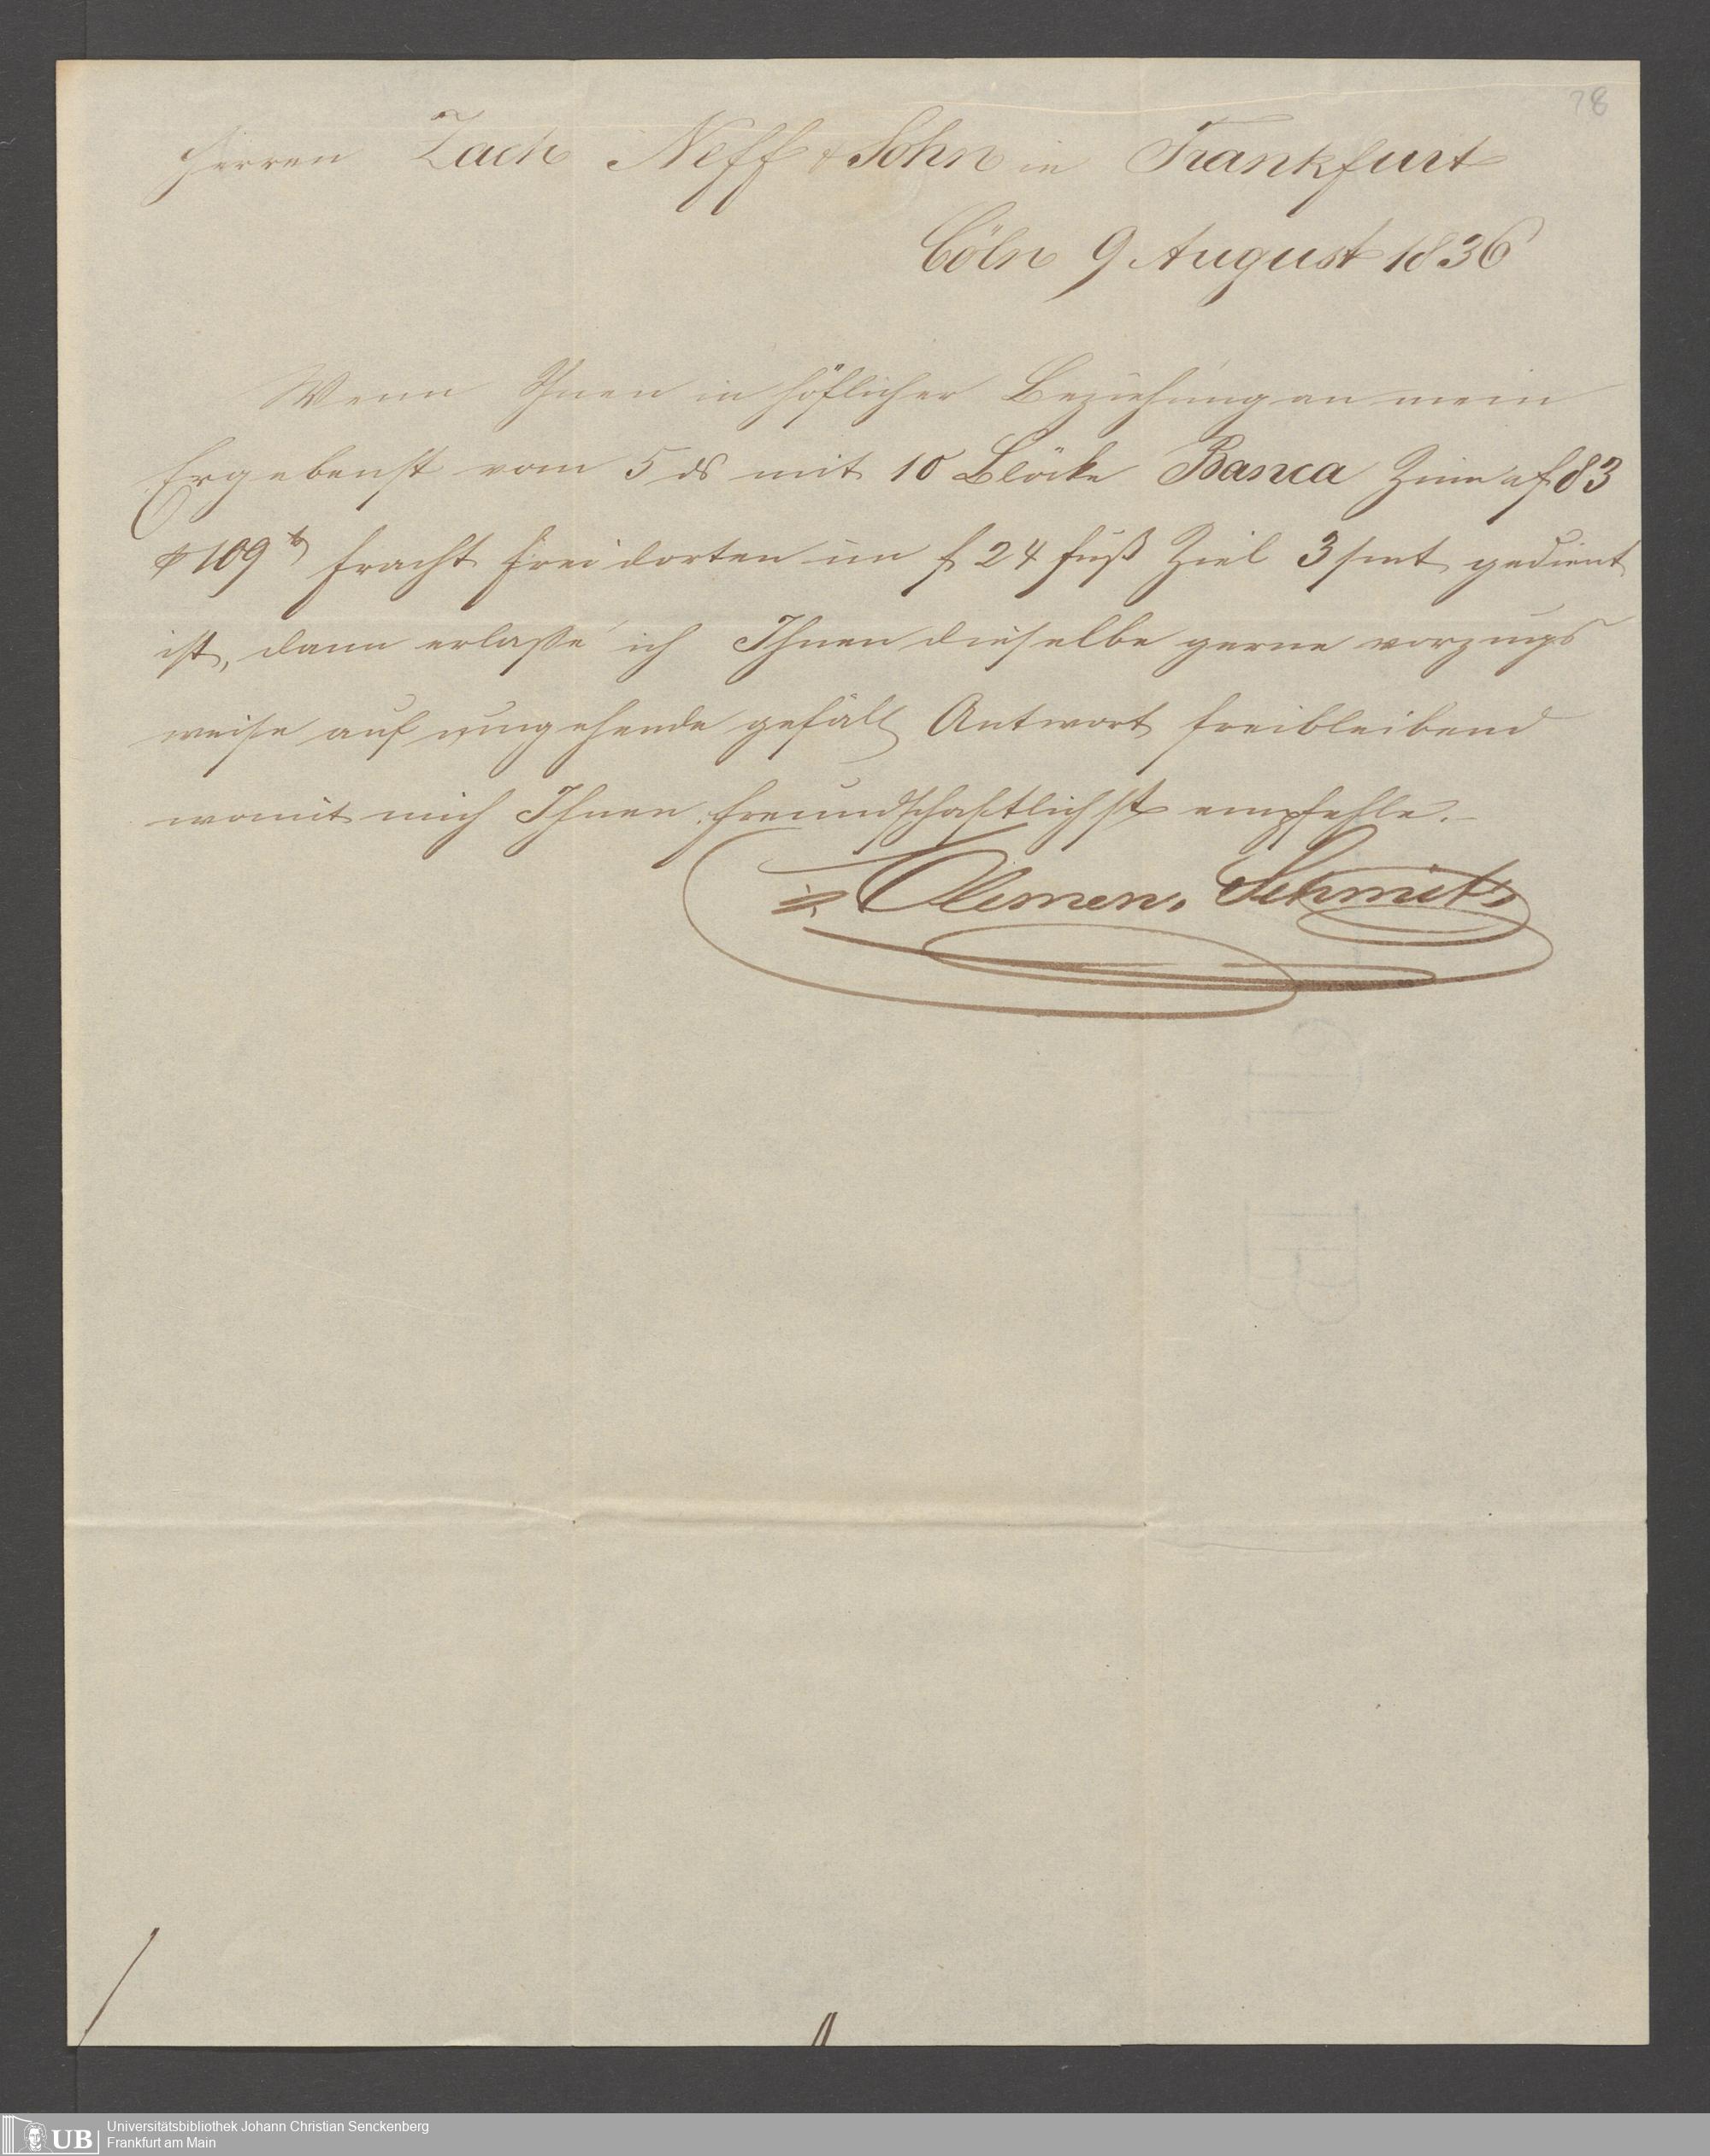 78
Herren Zach Neff & Sohn in Frankfurt
Cöln 9 August 1836
Wenn Ihnen in höflicher Beziehung an mein
Ergebenst vom 5 ds mit 10 Blöcke Banca Zinn a f 83
109 fracht frei dorten im f 24 fuß Ziel 3 mt gedient
ist, dann erlaße ich Ihnen dieselbe gerne vorzugs
weise auf umgehende gefäll Antwort freibleibend
womit mich Ihnen freundschaftlichst empfehle.
Clemens Schmits
UB Universitätsbibliothek Johann Christian Senckenberg
Frankfurt am Main